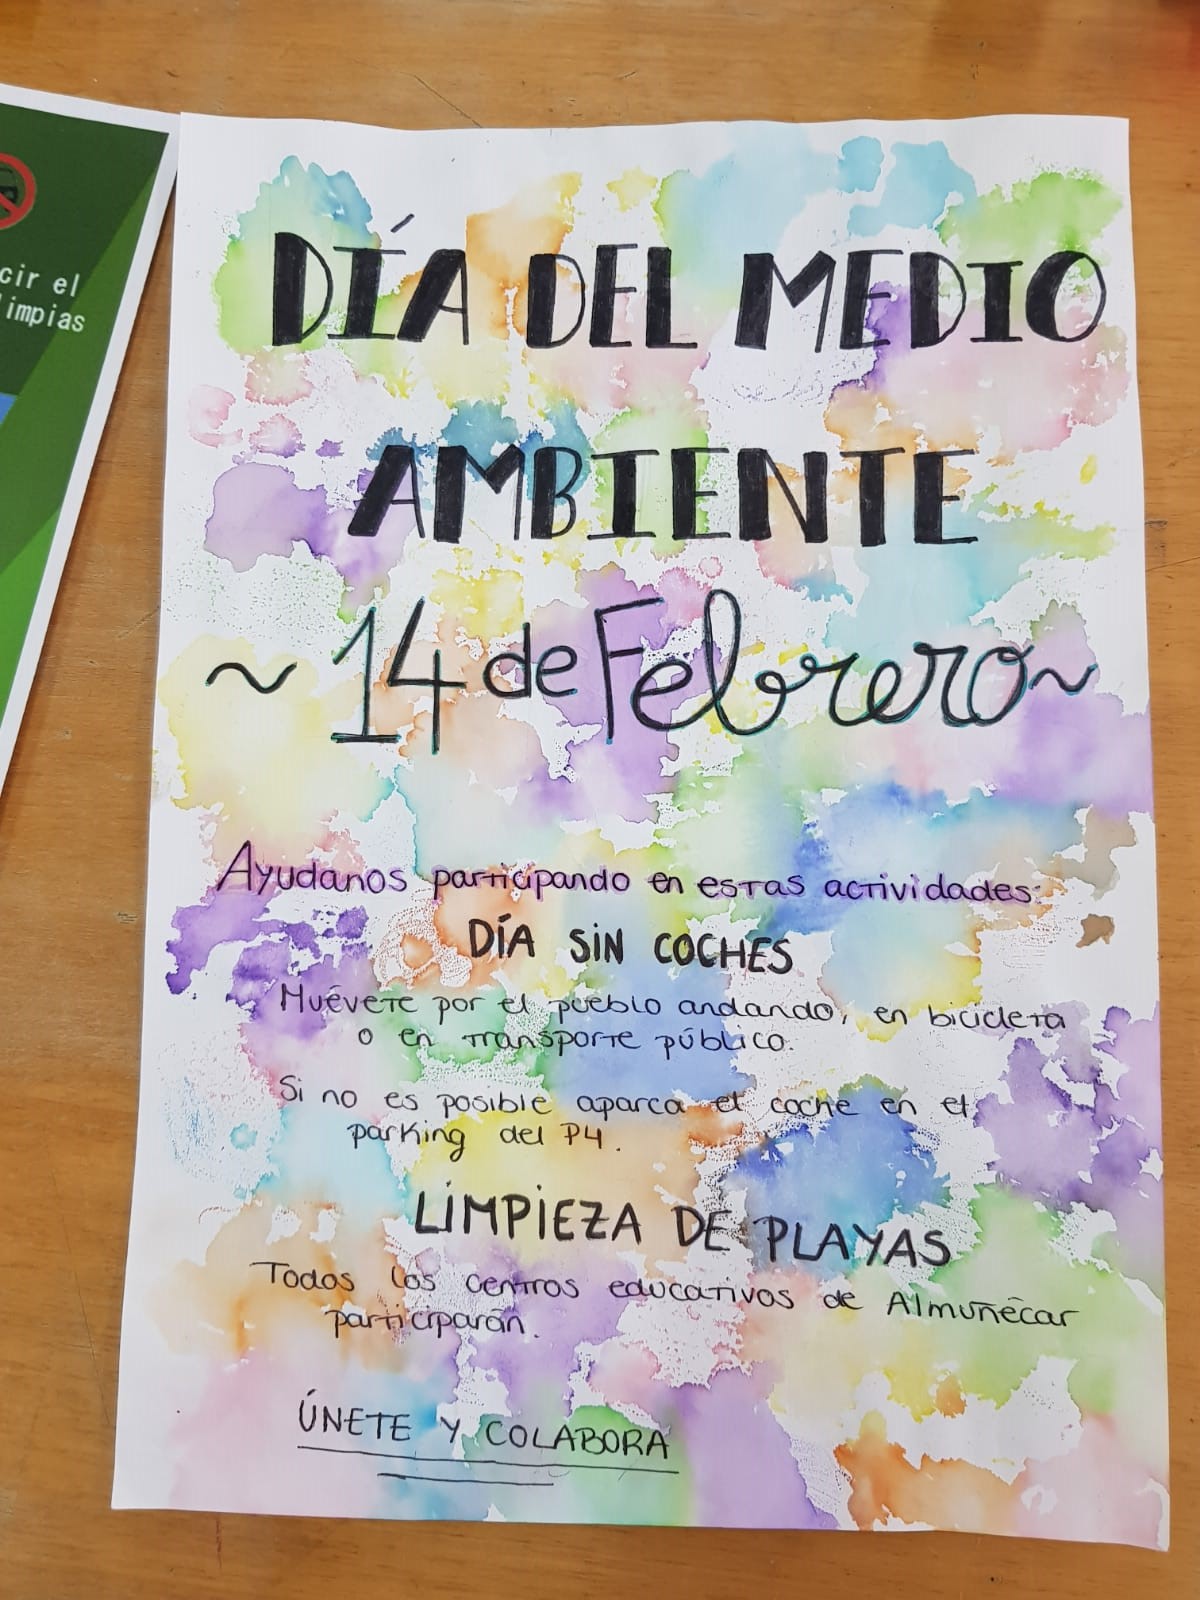 cir el
limpias
DÍA DEL MEDIO
AMBIENTE
~ 14 de Febrero ~
Ayudanos participando en estas actividades:
DÍA SIN COCHES
Muévete por el pueblo andando, en bicicleta
o en transporte público.
Si no es posible aparca el coche en el
parking del P4.
LIMPIEZA DE PLAYAS
Todos los centros educativos de Almuñécar
participarán.
ÚNETE Y COLABORA